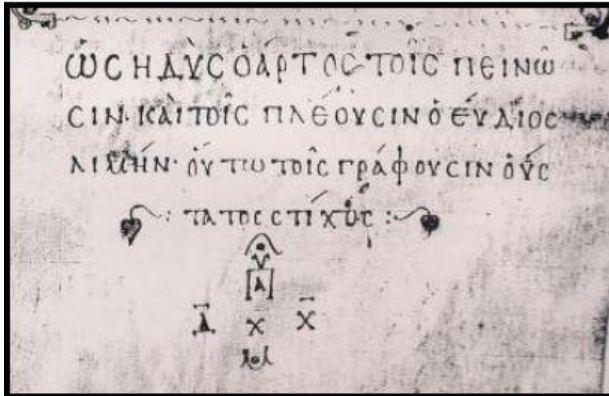 ὩϹ ἩΔῪϹ Ὁ ἌΡΤΟϹ ΤΟΙ͂Ϲ ΠΕΙΝΩ͂
ϹΙΝ· ΚΑῚ ΤΟΙ͂Ϲ ΠΛΈΟΥϹΙΝ Ὁ ΕΎΔΙΟϹ
ΛΙΜῊΝ· ΟὝΤΩ ΤΟΙ͂Ϲ ΓΡΆΦΟΥϹΙΝ Ὁ ὝϹ
: ΤΑΤΟϹ ϹΤΊΧΟϹ :